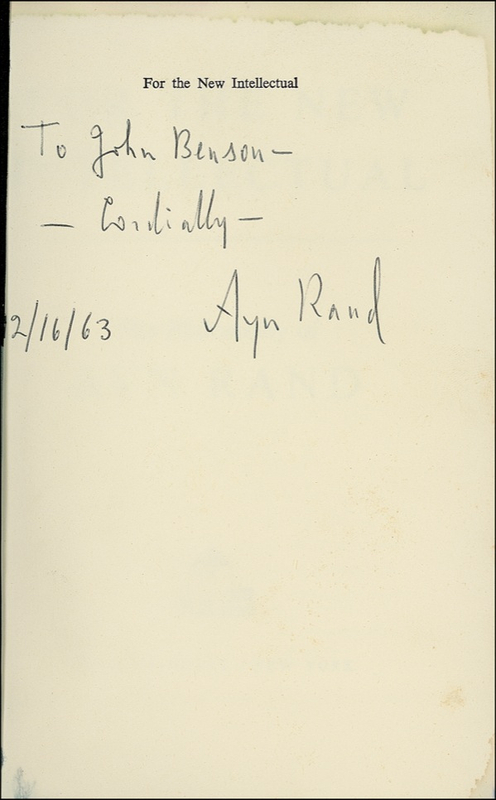 For the New Intellectual
To John Benson —
— Cordially —
Ayn Rand
2/16/63